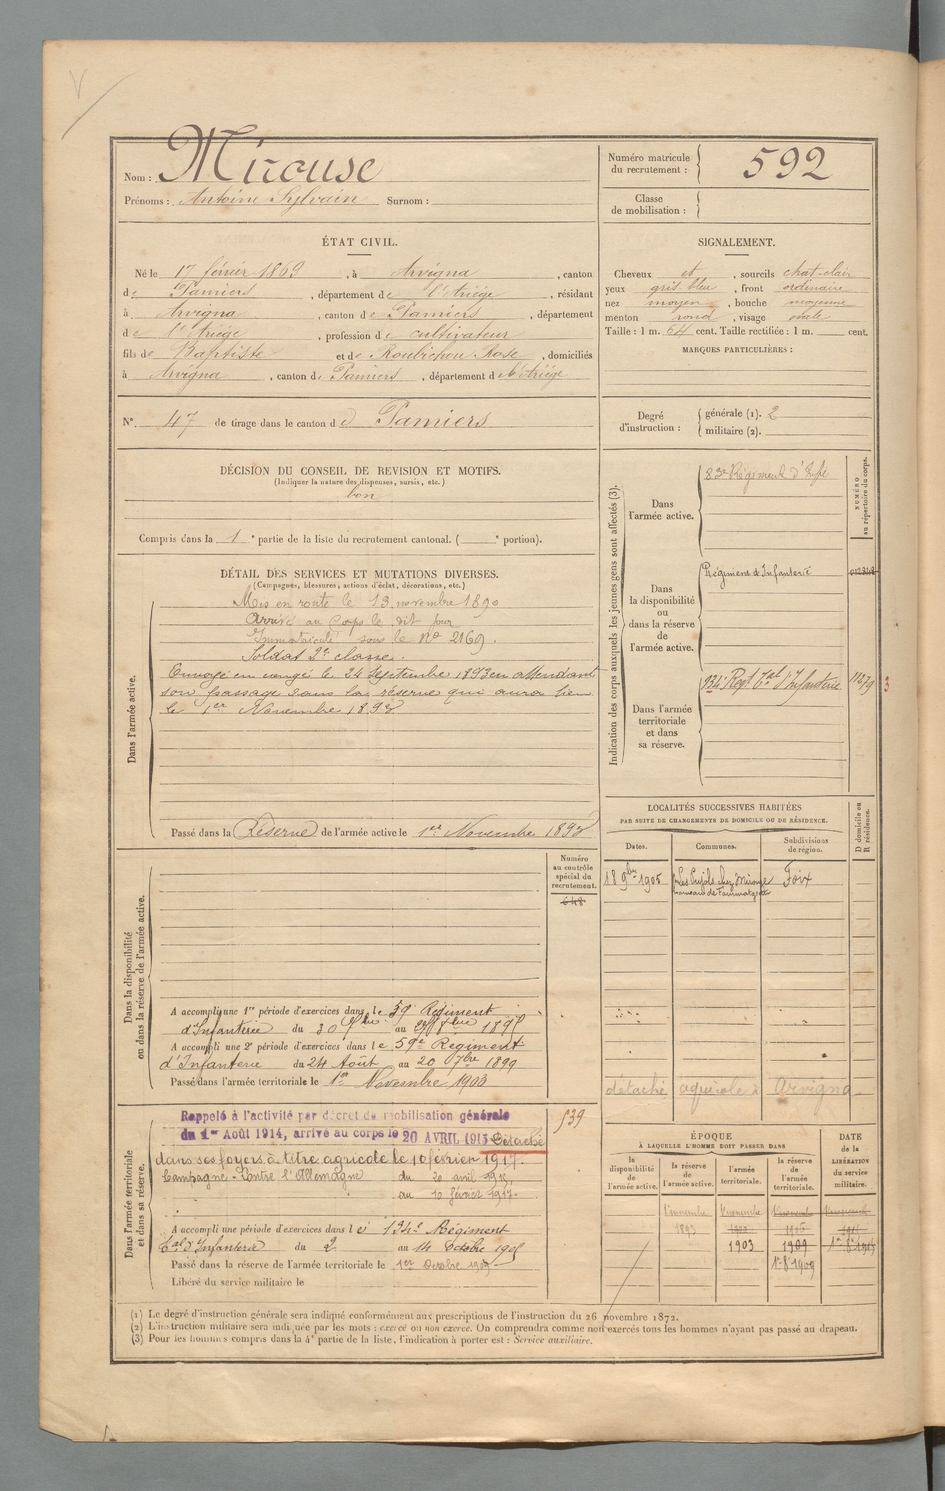 Nom : Mirouse
Prénoms : Antoine Sylvain Surnom :
Numéro matricule du recrutement : 592
Classe de mobilisation :
ÉTAT CIVIL.
Né le 17 février 1869, à Arvigna, canton
de Pamiers, département de l'Ariége, résidant
à Arvigna, canton de Pamiers, département
de l'Ariége, profession de cultivateur
fils de Baptiste et de Roubichou Rose, domiciliés
à Arvigna, canton de Pamiers, département de l'Ariége
N° 47 de tirage dans le canton de Pamiers
SIGNALEMENT.
Cheveux et, sourcils chat-clair
yeux gris bleu, front ordinaire
nez moyen, bouche moyenne
menton rond, visage ovale
Taille : 1 m. 64 cent. Taille rectifiée : 1 m. cent.
MARQUES PARTICULIÈRES :
Degré d'instruction : générale (1). 2
militaire (2).
DÉCISION DU CONSEIL DE REVISION ET MOTIFS.
(Indiquer la nature des dispenses, sursis, etc.)
bon
Compris dans la 1e partie de la liste du recrutement cantonal. ( e portion).
DÉTAIL DES SERVICES ET MUTATIONS DIVERSES.
(Campagnes, blessures, actions d'éclat, décorations, etc.)
Dans l'armée active.
Mis en route le 13 novembre 1890
Arrivé au Corps le dit jour
Immatriculé sous le N° 2169.
Soldat 2e classe.
Envoyé en congé le 24 Septembre 1893 en attendant
son passage dans la réserve qui aura lieu
le 1er Novembre 1893
Passé dans la Réserve de l'armée active le 1er Novembre 1893
Indication des corps auxquels les jeunes gens sont affectés (3).
NUMÉRO au répertoire du corps.
Dans l'armée active.
83e Régiment d'Infie
Dans la disponibilité ou dans la réserve de l'armée active.
Régiment d'Infanterie
Dans l'armée territoriale et dans sa réserve.
134e Regt Tal d'Infanterie
LOCALITÉS SUCCESSIVES HABITÉES
PAR SUITE DE CHANGEMENTS DE DOMICILE OU DE RÉSIDENCE.
Dates. Communes. Subdivisions de région. D domicile ou R résidence.
18 9bre 1905 Les Pujols chez Mirouse Foix
détaché agricole à Arvigna
Dans la disponibilité ou dans la réserve de l'armée active.
Numéro au contrôle spécial du recrutement.
648
A accompli une 1re période d'exercices dans le 59e Régiment
d'Infanterie du 30 au 1895
A accompli une 2e période d'exercices dans le 59e Régiment
d'Infanterie du 24 Août au 20 7bre 1899
Passé dans l'armée territoriale le 1er Novembre 1903
Dans l'armée territoriale et dans sa réserve.
539
Rappelé à l'activité par décret de mobilisation générale
du 1er Août 1914, arrivé au corps le 20 AVRIL 1915 Détaché
dans ses foyers à titre agricole le 10 février 1917.
Campagne - Contre l'Allemagne du 20 avril 1915.
au 10 février 1917.
A accompli une période d'exercices dans le 134e Régiment
Tal d'Infanterie du 2 au 14 Octobre 1905
Passé dans la réserve de l'armée territoriale le 1er Octobre 1909
Libéré du service militaire le
ÉPOQUE
À LAQUELLE L'HOMME DOIT PASSER DANS
la disponibilité de l'armée active. la réserve de l'armée active. l'armée territoriale. la réserve de l'armée territoriale. DATE de la LIBÉRATION du service militaire.
1 novembre 1 novembre 1 novembre 1 novembre
1893 1903
1903 1909
1er 8bre 1909
(1) Le degré d'instruction générale sera indiqué conformément aux prescriptions de l'instruction du 26 novembre 1872.
(2) L'instruction militaire sera indiquée par les mots : exercé ou non exercé. On comprendra comme non exercés tous les hommes n'ayant pas passé au drapeau.
(3) Pour les hommes compris dans la 4e partie de la liste, l'indication à porter est : Service auxiliaire.